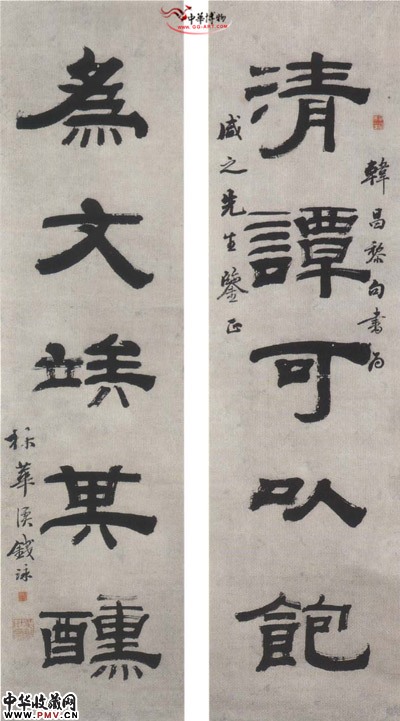 中華博物
www.GG-ART.com
清譚可以飽
韓昌黎句書為
之先生鑒正
為文竢其醺
梅華溪錢泳
中华收藏网
WWW.PMV.CN